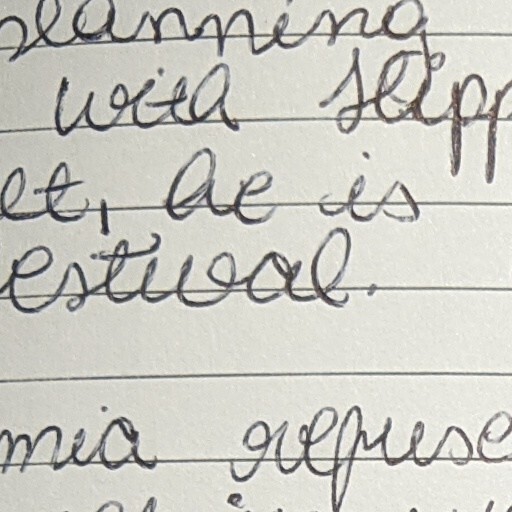 planning
with slipp
et, he is
estival.
mia refuse